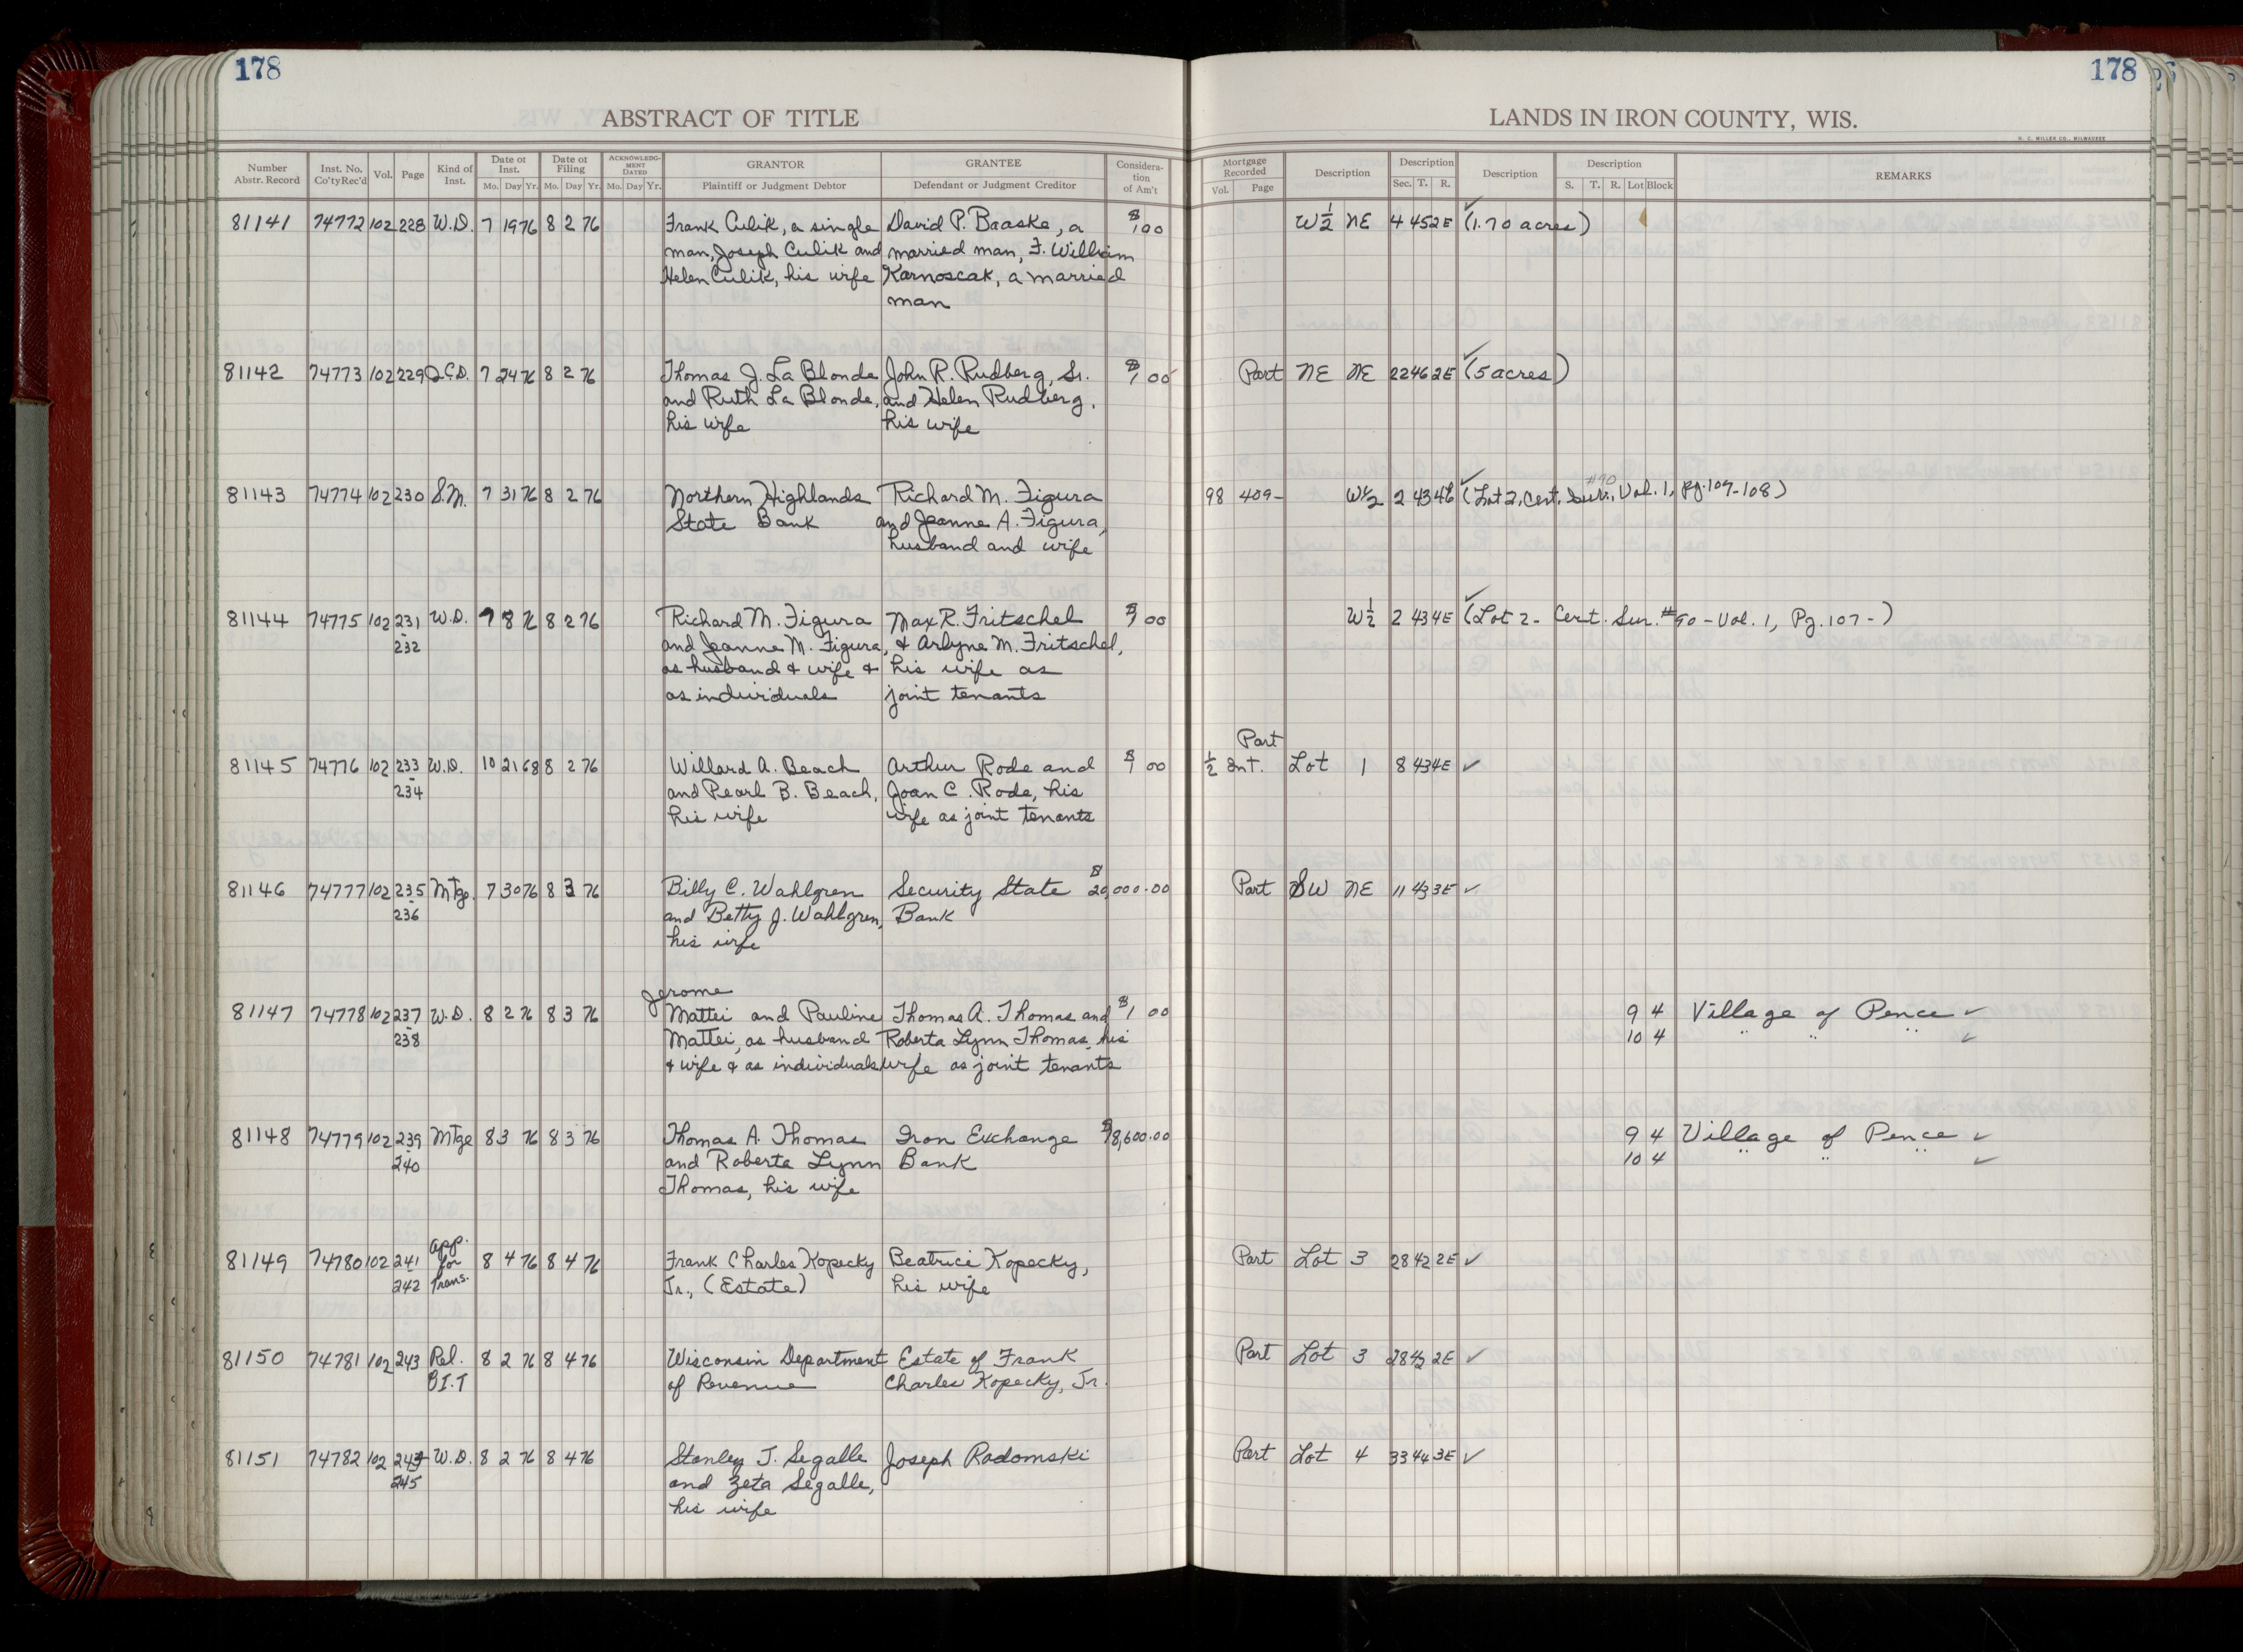 178
178
ABSTRACT OF TITLE
LANDS IN IRON COUNTY, WIS.
H. C. MILLER CO., MILWAUKEE
Number Abstr. Record Inst. No. Co'ty Rec'd Vol. Page Kind of Inst. Date of Inst. Mo. Day Yr. Date of Filing Mo. Day Yr. ACKNOWLEDGMENT DATED Mo. Day Yr. GRANTOR Plaintiff or Judgment Debtor GRANTEE Defendant or Judgment Creditor Consideration of Am't Mortgage Recorded Vol. Page Description Description Sec. T. R. Description Description S. T. R. Lot Block REMARKS
81141 74772 102 228 W.D. 7 19 76 8 2 76 Frank Culik, a single David P. Baaske, a $ 1 00 W½ NE 4 45 2E (1.70 acres)
man, Joseph Culik and married man, F. William
Helen Culik, his wife Karnoscak, a married
man
81142 74773 102 229 Q.C.D. 7 24 76 8 2 76 Thomas J. La Blonde John R. Rudberg, Sr. $ 1 00 Part NE NE 22 46 2E (5 acres)
and Ruth La Blonde, and Helen Rudberg,
his wife his wife
#90
81143 74774 102 230 S.M. 7 31 76 8 2 76 Northern Highlands Richard M. Figura 98 409- W½ 2 43 4E (Lot 2, Cert. Sur., Vol. 1, pg. 107-108)
State Bank and Jeanne A. Figura,
husband and wife
81144 74775 102 231 W.D. 7 8 76 8 2 76 Richard M. Figura Max R. Fritschel $ 1 00 W½ 2 43 4E (Lot 2 - Cert. Sur. #90 - Vol. 1, Pg. 107-)
-232 and Jeanne M. Figura, & Arlyne M. Fritschel,
as husband & wife & his wife as
as individuals joint tenants
Part
81145 74776 102 233 W.D. 10 21 68 8 2 76 Willard A. Beach Arthur Rode and $ 1 00 ½ Int. Lot 1 8 43 4E ✓
-234 and Pearl B. Beach, Joan C. Rode, his
his wife wife as joint tenants
81146 74777 102 235 Mtge. 7 30 76 8 3 76 Billy C. Wahlgren Security State $ 20,000.00 Part SW NE 11 43 3E ✓
-236 and Betty J. Wahlgren, Bank
his wife
Jerome
81147 74778 102 237 W.D. 8 2 76 8 3 76 Mattei and Pauline Thomas A. Thomas and $ 1 00 9 4 Village of Pence ✓
-238 Mattei, as husband Roberta Lynn Thomas, his 10 4 " " ✓
& wife & as individuals wife as joint tenants
81148 74779 102 239 Mtge 8 3 76 8 3 76 Thomas A. Thomas Iron Exchange $ 18,600.00 9 4 Village of Pence ✓
-240 and Roberta Lynn Bank 10 4 " " " ✓
Thomas, his wife
App.
81149 74780 102 241 for 8 4 76 8 4 76 Frank Charles Kopecky Beatrice Kopecky, Part Lot 3 28 42 2E ✓
-242 Trans. Jr., (Estate) his wife
81150 74781 102 243 Rel. 8 2 76 8 4 76 Wisconsin Department Estate of Frank Part Lot 3 28 42 2E ✓
of Revenue Charles Kopecky, Jr.
81151 74782 102 244 W.D. 8 2 76 8 4 76 Stanley J. Segalle Joseph Radomski Part Lot 4 33 44 3E ✓
245 and Zeta Segalle,
his wife